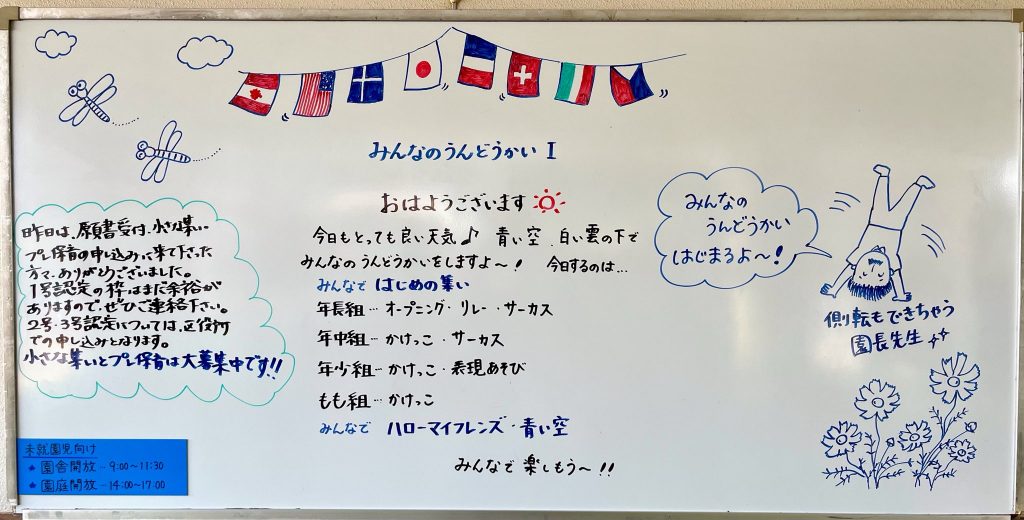 みんなのうんどうかい I
おはようございます
今日もとっても良い天気♪ 青い空、白い雲の下で
みんなのうんどうかいをしますよ〜! 今日するのは…
みんなで はじめの集い
年長組…オープニング・リレー・サーカス
年中組…かけっこ・サーカス
年少組…かけっこ・表現あそび
もも組…かけっこ
みんなで ハローマイフレンズ・青い空
みんなで 楽しもう〜!!
昨日は、原書受付、小さな集い
プレ保育の申し込みに来て下さった
方々、ありがとうございました。
1号認定の枠はまだ余裕が
ありますので、ぜひご連絡下さい。
2号・3号認定については、区役所
での申し込みとなります。
小さな集いとプレ保育は大募集中です!!
未就園児向け
★園舎開放-9:00〜11:30
★園庭開放-14:00〜17:00
みんなの
うんどうかい
はじまるよ〜!
側転もできちゃう
園長先生